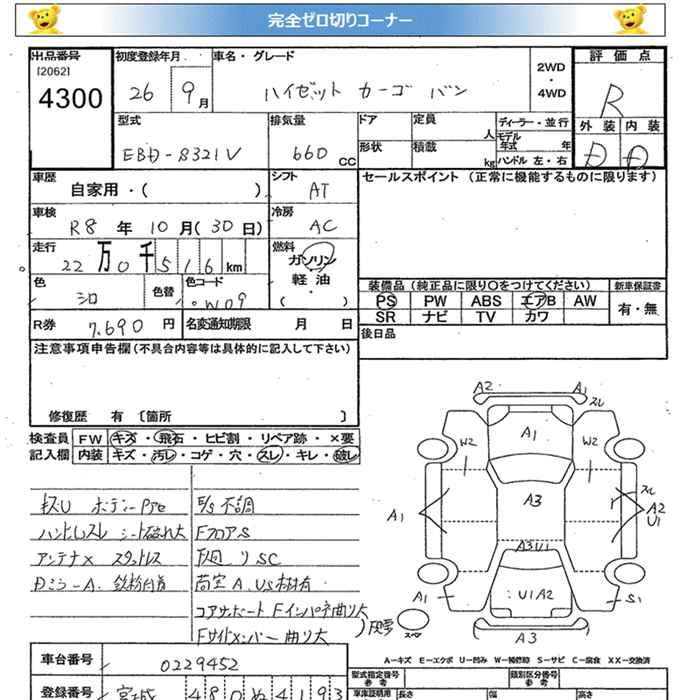 完全ゼロ切りコーナー
出品番号 初度登録年月 車名・グレード 2WD ・ 4WD 評価点
[2062]
4300 26 9月 ハイゼット カーゴ バン R
型式 排気量 ドア 定員 人 ディーラー・並行 外装 内装
モデル年式 年
EBD-S321V 660 CC 形状 積載 kg ハンドル 左・右 D D
車歴 シフト セールスポイント (正常に機能するものに限ります)
自家用・( ) AT
車検 冷房
R8 年 10 月(30日) AC
走行 燃料
22万0千516km ガソリン・軽油・( )
色 色替 色コード 装備品 (純正品に限り○をつけてください) 新車保証書
シロ W09 PS PW ABS エアB AW 有・無
SR ナビ TV カワ
R券 7,690 円 名変通知期限 月 日 後日品
注意事項申告欄 (不具合内容等は具体的に記入して下さい)
修復歴 有 [箇所 ]
検査員 FW キズ・飛石・ヒビ割・リペア跡・×要
記入欄 内装 キズ・汚レ・コゲ・穴・スレ・キレ・破レ
キズU ボデーPへこ E/S不調
ハンドルスレ シート破れ大 FフロアS
アンテナX スタットレス 下回りSC
Dミラ-A. 鉄粉付着
コアサポート Fインパネ曲り大
Fサイドメンバー曲り大
A2 A1 スレ
A1
W2 W2
A1 A3 スレ A2 U1
A3U1
A1 U1A2 S1
スペア A3
A-キズ E-エクボ U-凹み W-補修跡 S-サビ C-腐食 XX-交換済
車台番号 0229452 型式指定番号 参考 類別区分番号 参考
登録番号 宮城 480 ぬ 4193 車庫証明用 長さ 幅 高さ